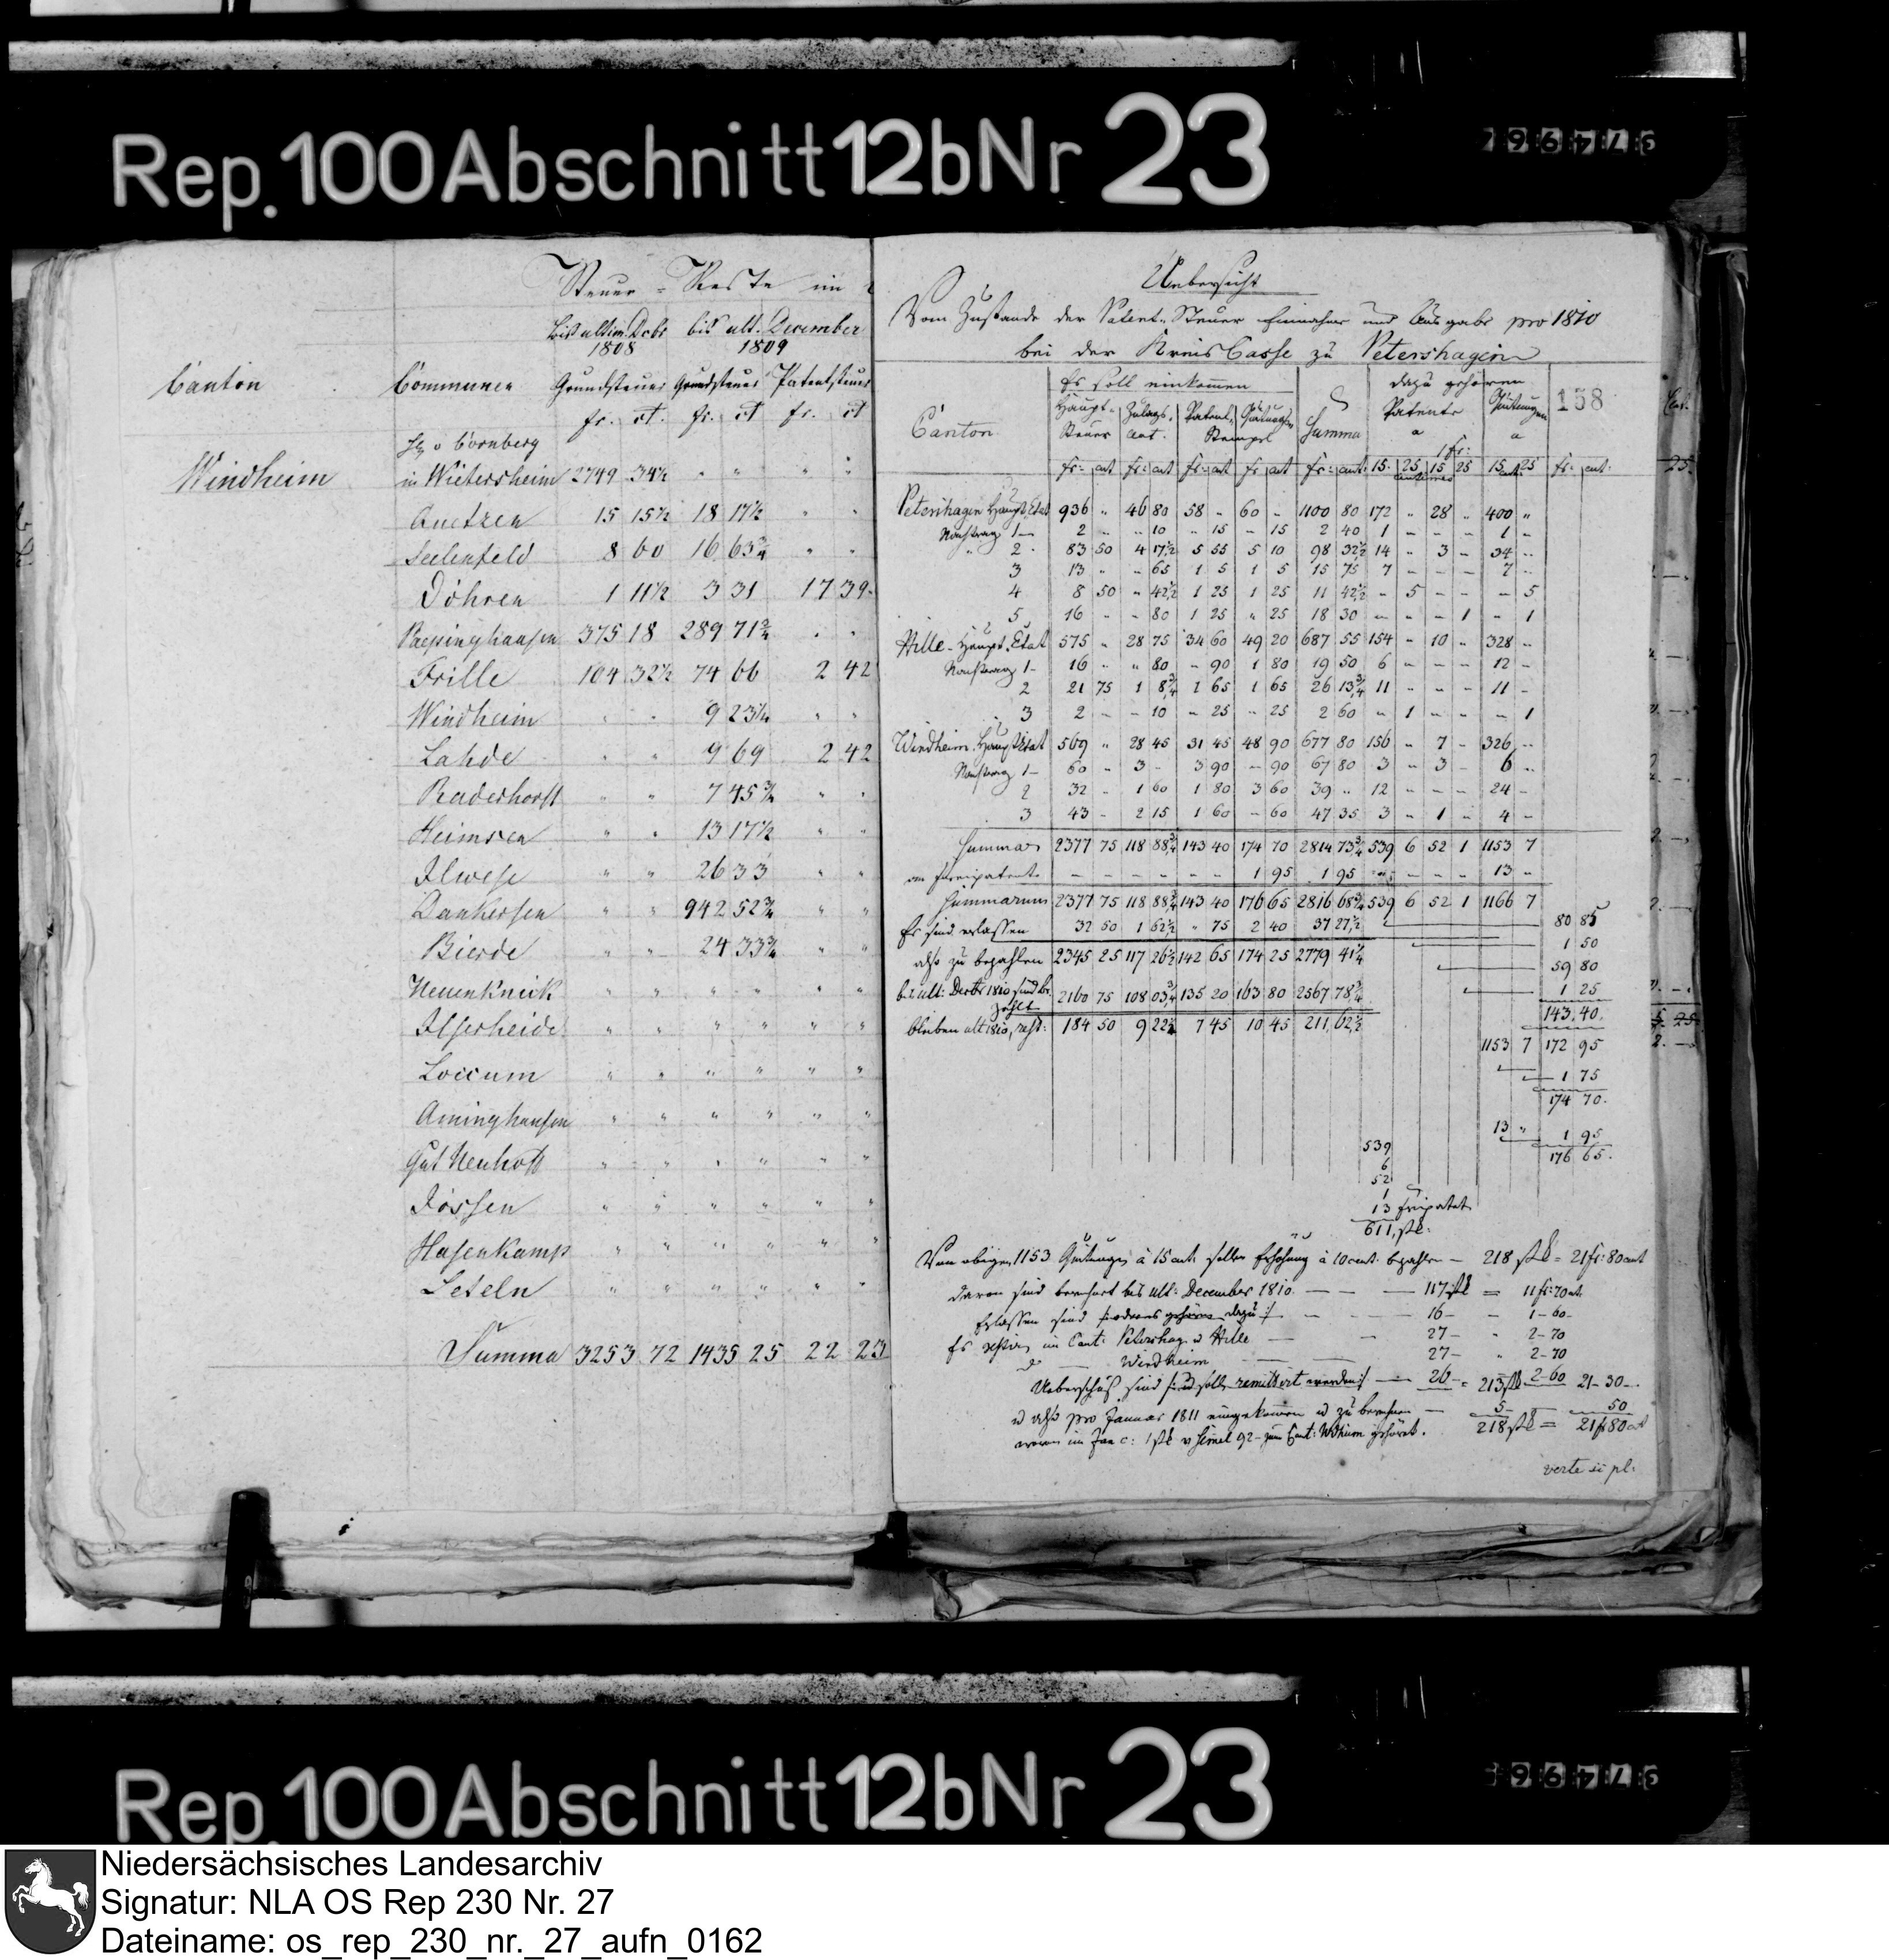 Rep. 100 Abschnitt 12b Nr 23
Steuer = Reste im
bis ultim. Dcbr bis ult. December
1808 1809
Canton Communen Grundsteuer Grundsteuer Patentsteuer
fr. ct. fr. ct fr. ct
v Cornberg
Windheim in Wietersheim 2749 34½ " " " "
Quetzen 15 15½ 18 17½ " "
Seelenfeld 8 60 16 63¾ " "
Döhren 1 11½ 3 31 17 39
Paepinghausen 375 18 289 71¾ " "
Frille 104 32½ 74 66 2 42
Windheim " " 9 23¼ " "
Lahde " " 9 69 2 42
Raderhorst " " 7 45¾ " "
Heimsen " " 13 17½ " "
Ilvese " " 26 33 " "
Dankersen " " 942 52¾ " "
Bierde " " 24 33¾ " "
Neuenknick " " " " " "
Ilserheide " " " " " "
Loccum " " " " " "
Aminghausen " " " " " "
Gut Neuhoff " " " " " "
Jössen " " " " " "
Hasenkamp " " " " " "
Leteln " " " " " "
Summa 3253 72 1435 25 22 23
Uebersicht
Vom Zustande der Patent-Steuer Einnahme und Ausgabe pro 1810
bei der Kreis Casse zu Petershagen
Es soll einkommen dazu gehören
158
Haupt- Zulags- Patent- Quitungs- Patente Quitungen
Canton Steuer Cent. Stempel Summa a a
1 fr:
fr: cent fr: cent fr: cent fr cent fr: cent: 15. 25 15 25 15 25 fr: cent:
Petershagen Haupt Etat 936 " 46 80 58 - 60 - 1100 80 172 " 28 " 400 "
Nachtrag 1 - 2 " " 10 " 15 - 15 2 40 1 - - - 1 -
" 2 - 83 50 4 17½ 5 55 5 10 98 32½ 14 - 3 - 34 "
3 13 " " 65 1 5 1 5 15 75 7 - - - 7 "
4 8 50 " 42½ 1 25 1 25 11 42½ - 5 - - - 5
5 16 - - 80 1 25 " 25 18 30 - - - 1 - 1
Hille - Haupt-Etat 575 " 28 75 34 60 49 20 687 55 154 - 10 - 328 "
Nachtrag 1 - 16 " " 80 - 90 1 80 19 50 6 - - - 12 -
2 21 75 1 8¾ 1 65 1 65 26 13¾ 11 - - - 11 -
3 2 - - 10 - 25 - 25 2 60 - 1 - - - 1
Windheim. Haupt Etat 569 " 28 45 31 45 48 90 677 80 156 - 7 - 326 "
Nachtrag 1 - 60 - 3 - 3 90 - 90 67 80 3 - 3 - 6 "
2 32 - 1 60 1 80 3 60 39 " 12 - - - 24 -
3 43 - 2 15 1 60 - 60 47 35 3 - 1 - 4 -
Summa 2377 75 118 88¾ 143 40 174 70 2814 73¾ 539 6 52 1 1153 7
1 95 1 95 13 "
Summarum 2377 75 118 88¾ 143 40 176 65 2816 68¾ 539 6 52 1 1166 7
Es sind erlassen 32 50 1 62½ " 75 2 40 37 27½ 80 85
also zu bezahlen 2345 25 117 26¼ 142 65 174 25 2779 41¼ 1 50
59 80
bis ult: Decbr 1810 sind be-
zahlt 2160 75 108 03¾ 135 20 163 80 2567 78¾ 1 25
143 40.
bleiben ult 1810, rest: 184 50 9 22½ 7 45 10 45 211, 62½
1153 7 172 95
1 75
174 70.
13 " 1 95
176 65.
539
6
52
1
13
611, stk:
Von obigen 1153 Quitungen à 15 cent: sollen Erhöhung à 10 cent. bezahlen - 218 stk = 21 fr: 80 cent
davon sind berechnet bis ult: December 1810. - - 117 stk = 11 fr: 70 ct.
Erlassen sind 16 - - 1 - 60 -
Es restiren im Cant: Petershag. u Hille - - 27 - " 2 - 70
do - Windheim - - 27 - " 2 - 70
Ueberschuß sind 26 - = 213 stk 2 - 60 21 - 30 -
u also pro Januar 1811 eingekommen u zu berechnen - 5 - 50
218 stk = 21 fr 80 ct
verte si pl:
Rep. 100 Abschnitt 12b Nr 23
Niedersächsisches Landesarchiv
Signatur: NLA OS Rep 230 Nr. 27
Dateiname: os_rep_230_nr._27_aufn_0162